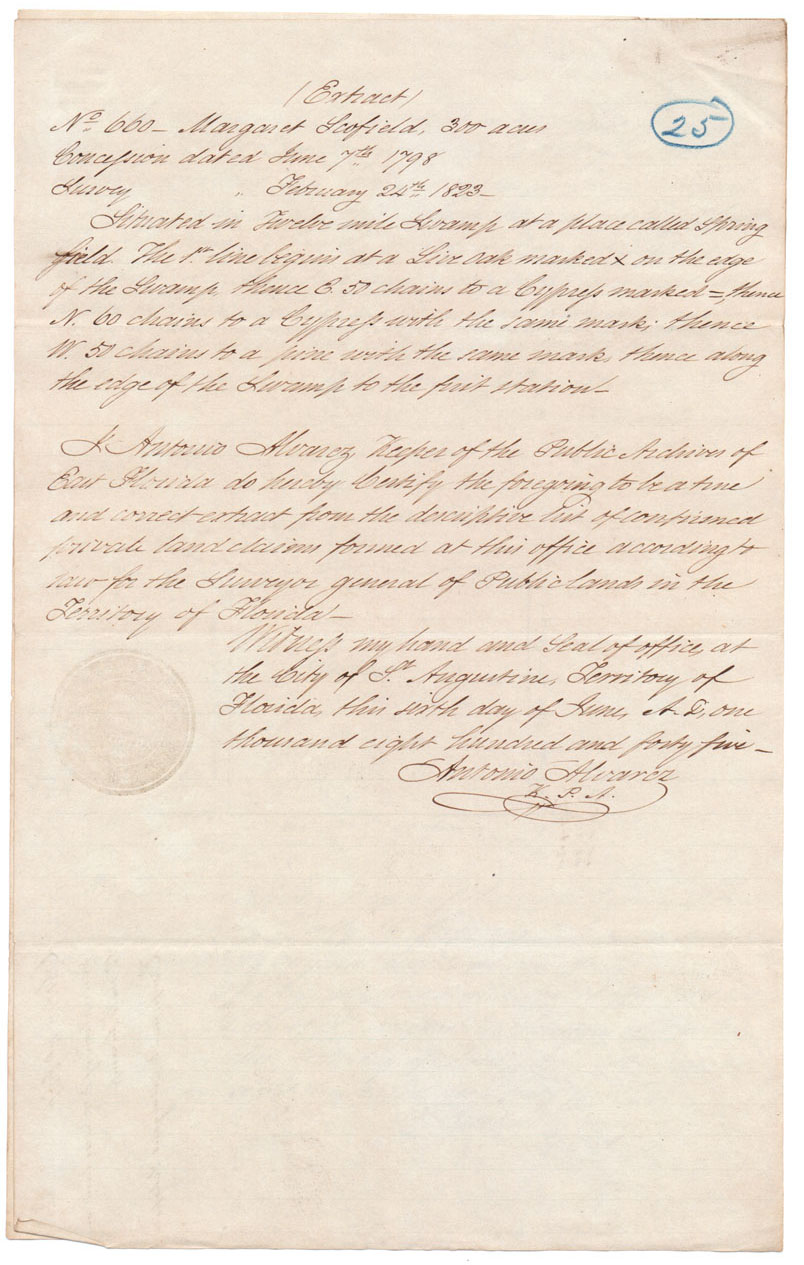 (Extract)
25
No. 660 – Margaret Scofield, 300 acres
Concession dated June 7th 1798
Survey " February 24th 1823 –
Situated in Twelve mile Swamp at a place called Spring
field. The 1st line begins at a Live oak marked x on the edge
of the Swamp, thence E. 50 chains to a Cypress marked =, thence
N. 60 chains to a Cypress with the same mark; thence
W. 50 chains to a pine with the same mark, thence along
the edge of the Swamp to the first station –
I Antonio Alvarez, Keeper of the Public Archives of
East Florida do hereby Certify the foregoing to be a true
and correct extract from the descriptive list of confirmed
private land claims formed at this office according to
law for the Surveyor general of Public lands in the
Territory of Florida –
Witness my hand and Seal of office, at
the City of St. Augustine, Territory of
Florida, this sixth day of June, A. D. one
thousand eight hundred and forty five –
Antonio Alvarez
K. P. A.